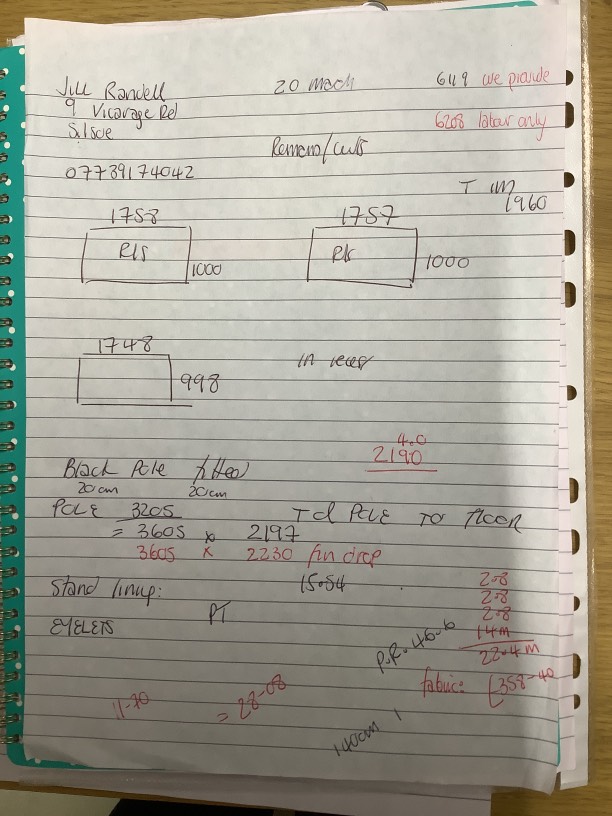 Jill Randell 20 mach 649 we provide
9 Vicarage Rd
Silsoe 6208 labour only
Romans/Curts
07739174042
T um
1960
1758 1757
R/S 1000 R/S 1000
1748 in recess
998
4.0
2190
Black Pole fitted
20cm 20cm
POLE 3205 T of POLE TO FLOOR
= 3605 x 2197
3605 x 2230 fin drop
Stand linup: 15.54
EYELETS PT
2.8
2.8
2.8
14m
22.4m
P.R. 46.6
fabric: £358-40
11-70 = 28-08
140cm